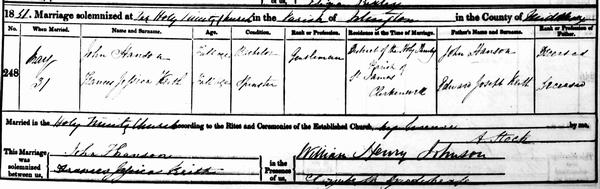 1851. Marriage solemnized at the Holy Trinity Church in the Parish of Islington in the County of Middlesex
No. When Married. Name and Surname. Age. Condition. Rank or Profession. Residence at the Time of Marriage. Father's Name and Surname. Rank or Profession of Father.
248 May 31 John Hanson Full age Bachelor Gentleman District of the Holy Trinity John Hanson Deceased
Frances Jessica Keith Full age Spinster Parish of St James Clerkenwell Edward Joseph Keith Deceased
Married in the Holy Trinity Church according to the Rites and Ceremonies of the Established Church, by Licence by me,
A. Stock
This Marriage was solemnized between us,
John Hanson
Frances Jessica Keith
in the Presence of us,
William Henry Johnson
Elizabeth